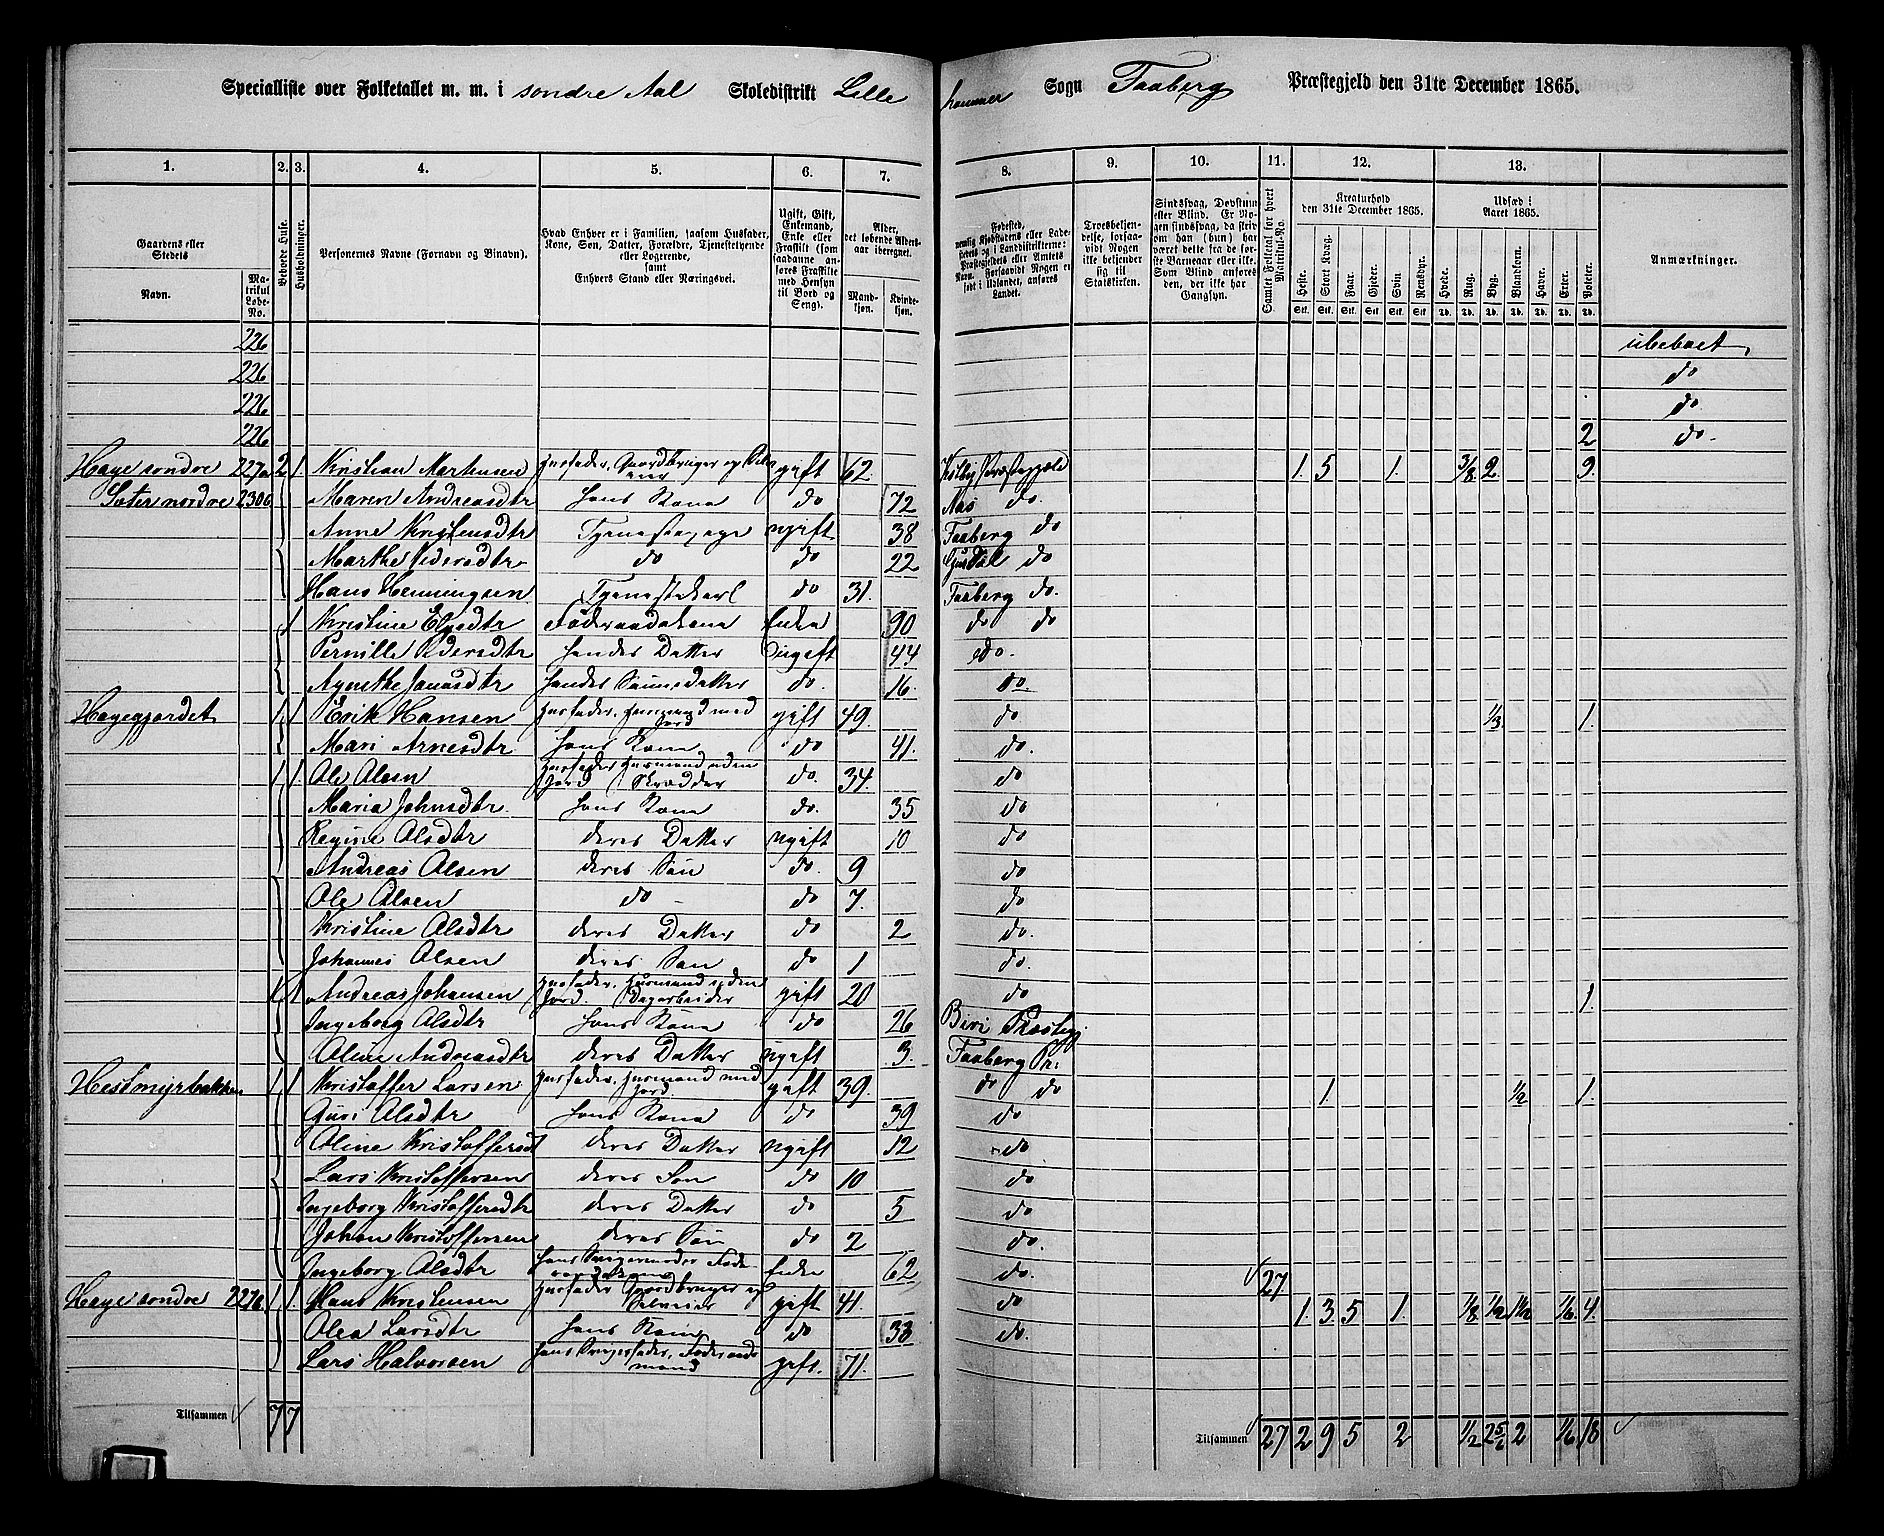 Specialliste over Folketallet m. m. i søndre Aal Skoledistrikt Lille hammer Sogn Faaberg Præstegjeld den 31te December 1865.
1. 2. 3. 4. 5. 6. 7. 8. 9. 10. 11. 12. 13.
Gaardens eller Stedets
Navn.
Matrikul Løbe-No.
Beboede Huse.
Husholdninger.
Personernes Navne (Fornavn og Binavn).
Hvad Enhver er i Familien, saasom Husfader, Kone, Søn, Datter, Forældre, Tjenestetyende eller Logerende, samt Enhvers Stand eller Næringsvei.
Ugift, Gift, Enkemand, Enke eller Fraskilt (som saadanne anføres Fraskilte med Hensyn til Bord og Seng).
Alder, det løbende Aldersaar iberegnet.
Mandkjøn.
Kvindekjøn.
Troesbekjendelse, forsaavidt Nogen ikke bekjender sig til Statskirken.
Samlet Folketal for hvert Matrikul-No.
Kreaturhold den 31te December 1865.
Heste. Stort Kvæg. Faar. Gjeder. Svin. Rensdyr.
Udsæd i Aaret 1865.
Hvede. Rug. Byg. Blandkorn. Havre. Erter. Poteter.
Anmærkninger.
226 ubeboet
226 do
226 do
226 2 do.
Hage søndre 227a 2 1. Kristian Martensen gift 62. 1. 5 1. 3/8 2 9.
Sæter nordre Maren Andreasdtr hans Kone do 72 Næs do.
Anne Kristensdtr Tjenestepige ugift 38 Faaberg do
Marthe Pedersdtr do do 22 Gusdal do
Hans Henningsen Tjenestekarl do 31. Faaberg do.
1 Kristine Elgsdtr Føderaadskone Enke 90 do do
Pernille Pedersdtr hendes Datter Ougift 44 do.
Agnethe Jansdtr hendes Sønnedatter do. 16. do
Hagegjærdet 1 1 Erik Hansen Husfader, Husmand med Jord gift 49. do 1/3 1.
Mari Arnesdtr hans Kone do 41. do.
1 1. Ole Olsen Husfader Husmand uden Jord Skrædder do. 34. do
Maria Johnsdtr. hans Kone do. 35 do
Regine Olsdtr deres Datter ugift 10 do
Andreas Olsen deres Søn do. 9 do
Ole Olsen do do 7. do
Kristine Olsdtr deres Datter do 2 do.
Johannes Olsen deres Søn do 1 do.
1 1 Andreas Johansen Husfader, Husmand uden Jord. Dagarbeider gift 20 do 1.
Ingeborg Olsdtr hans Kone do 26 Biri Præstegj.
Oline Andreasdtr deres Datter ugift 3. Faaberg Pr.
Hestmyrbakken 1 1 Kristoffer Larsen Husfader, Husmand med Jord. gift 39. do do 1. 1/2 1.
Guri Olsdtr hans Kone do 39 do
Oline Kristoffersdt deres Datter ugift 12 do
Lars Kristoffersen deres Søn do 10 do
Ingeborg Kristoffersdtr deres Datter do 5 do
Johan Kristoffersen deres Søn do 2 do.
Ingeborg Olsdtr hans Svigermoder Enke 62 do. 27.
Hage søndre 1 1. Hans Kristensen Husfader Gaardbruger og Selveier gift 41. do 1. 3. 5 1. 1/8 1/2 1 1/2 1/6 4.
Olea Larsdtr hans Kone do 33 do.
Lars Halvorsen hans Svigerfader, Føderaadsmand gift. 71.
Tilsammen 7 7
Tilsammen 27 2 9 5 2 1/2 2 1/6 18